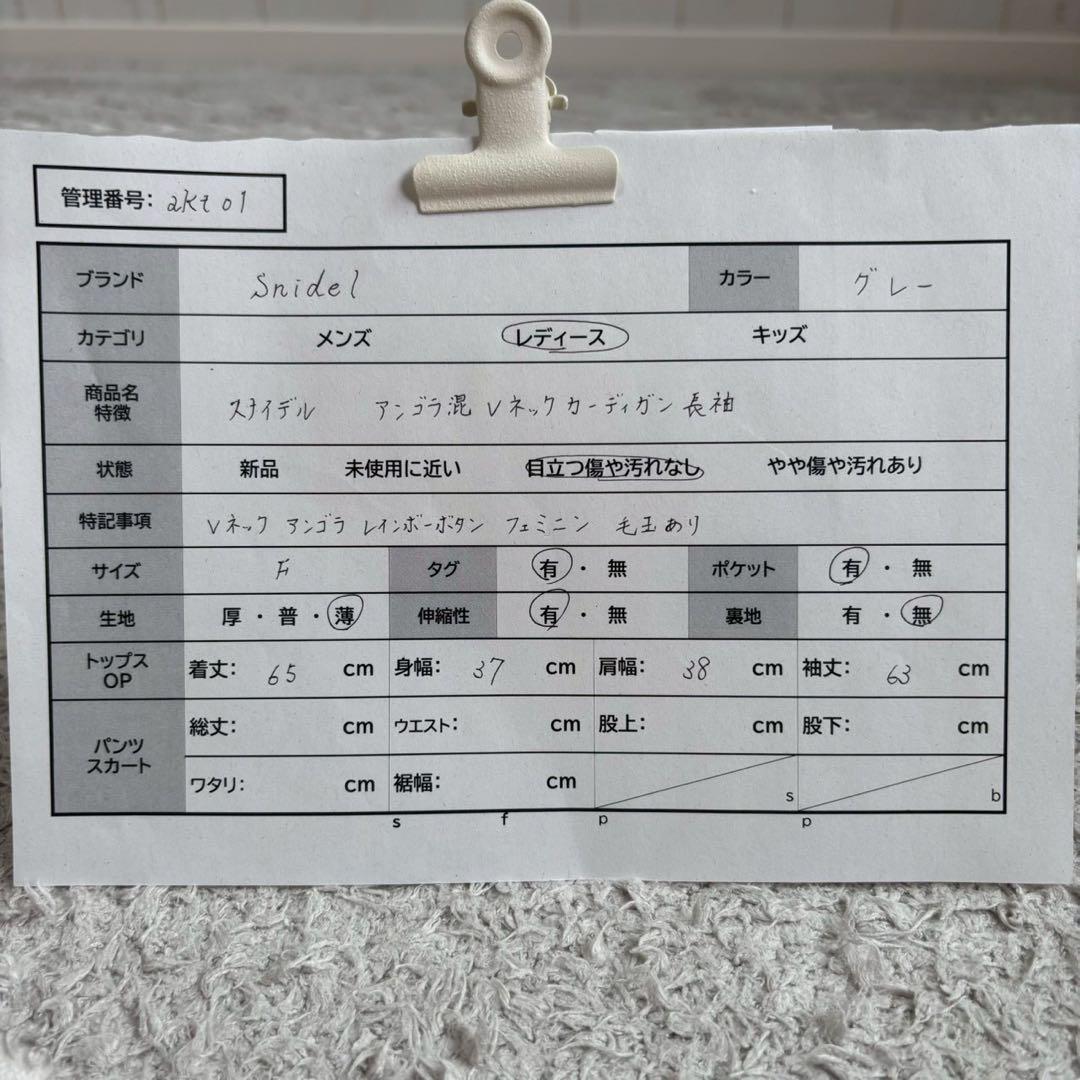 管理番号: akt01
ブランド Snidel カラー グレー
カテゴリ メンズ レディース キッズ
商品名 特徴 スナイデル アンゴラ混 Vネック カーディガン 長袖
状態 新品 未使用に近い 目立つ傷や汚れなし やや傷や汚れあり
特記事項 Vネック アンゴラ レインボーボタン フェミニン 毛玉あり
サイズ F タグ 有・無 ポケット 有・無
生地 厚・普・薄 伸縮性 有・無 裏地 有・無
トップス OP 着丈: 65 cm 身幅: 37 cm 肩幅: 38 cm 袖丈: 63 cm
パンツ スカート 総丈: cm ウエスト: cm 股上: cm 股下: cm
ワタリ: cm 裾幅: cm s b
s f p p